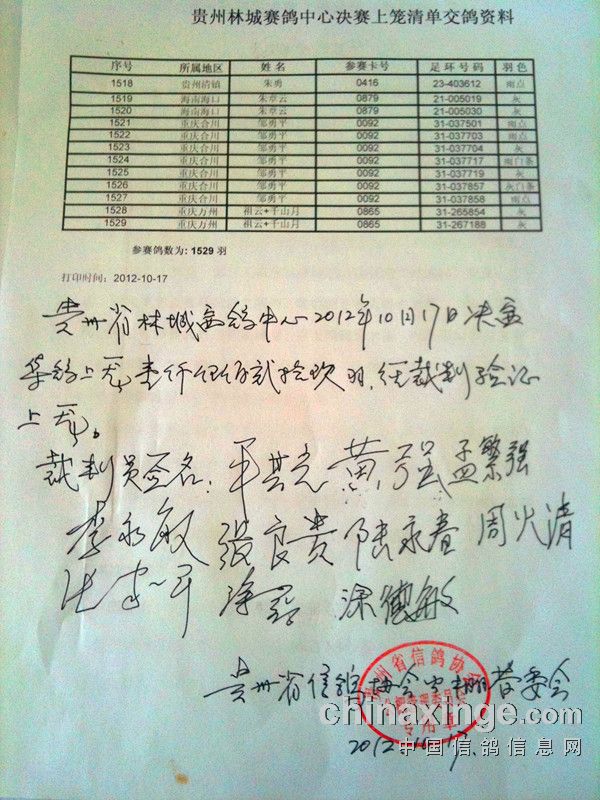 贵州林城赛鸽中心决赛上笼清单交鸽资料
序号 所属地区 姓名 参赛卡号 足环号码 羽色
1518 贵州清镇 朱勇 0416 23-403612 雨点
1519 海南海口 朱章云 0879 21-005019 灰
1520 海南海口 朱章云 0879 21-005030 灰
1521 重庆合川 邹勇平 0092 31-037501 雨点
1522 重庆合川 邹勇平 0092 31-037703 雨点
1523 重庆合川 邹勇平 0092 31-037704 灰
1524 重庆合川 邹勇平 0092 31-037717 雨白条
1525 重庆合川 邹勇平 0092 31-037719 灰
1526 重庆合川 邹勇平 0092 31-037857 灰白条
1527 重庆合川 邹勇平 0092 31-037858 雨点
1528 重庆万州 祖云+千山月 0865 31-265854 灰
1529 重庆万州 祖云+千山月 0865 31-267188 灰
参赛鸽数为: 1529 羽
打印时间: 2012-10-17
贵州省林城赛鸽中心2012年10月17日决赛
集鸽上笼壹仟伍佰贰拾玖羽,经裁判验证
上笼。
裁判员签名: 黄强 孟繁强
李永敏 张良贵 陆永春 周火清
涂德敏
贵州省信鸽协会公棚管委会
2012.10.17.
贵州省信鸽协会
专用章
chinaxinge.com
中国信鸽信息网